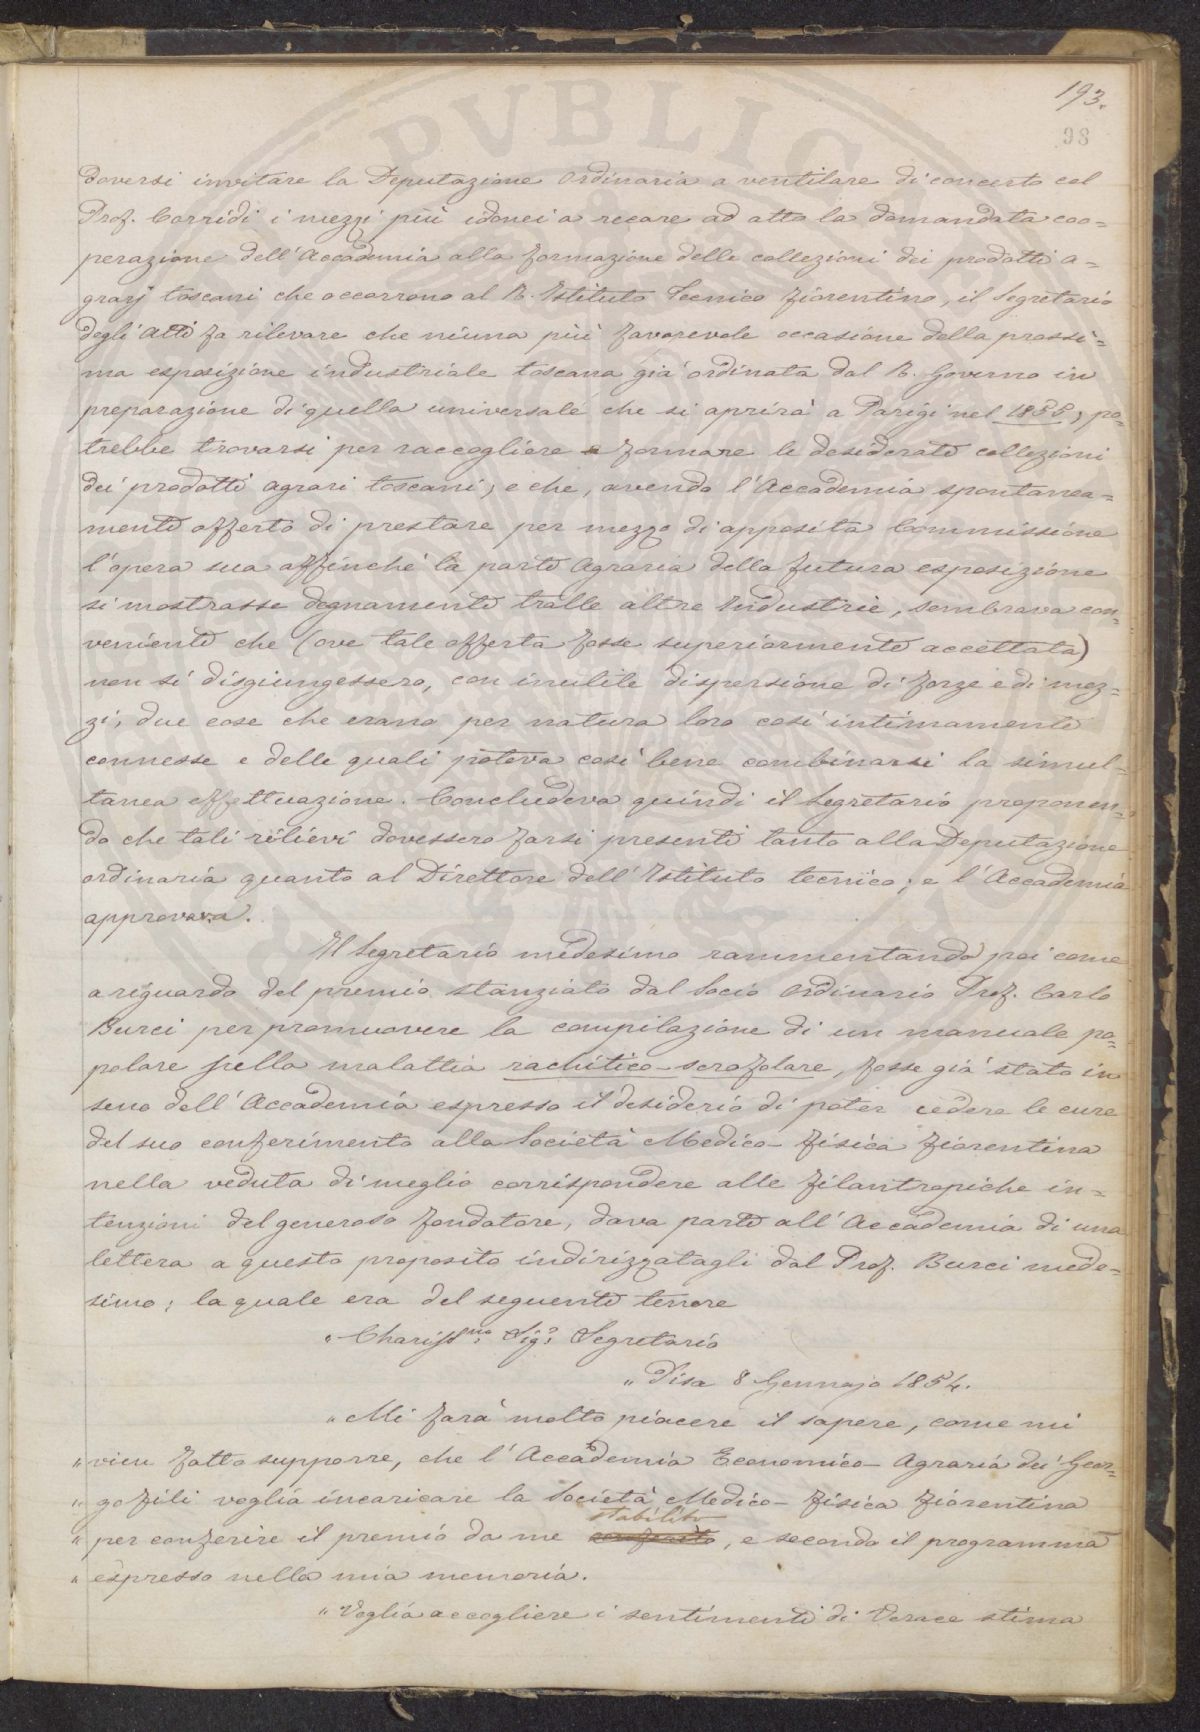 193.
98
doversi invitare la Deputazione Ordinaria a ventilare di concerto col
Prof. Corridi i mezzi più idonei a recare ad atto la domandata coo=
perazione dell'Accademia alla formazione delle collezioni dei prodotti a=
grarj toscani che occorrono al R. Istituto Tecnico fiorentino, il Segretario
degli Atti fa rilevare che niuna più favorevole occasione della prossi=
ma esposizione industriale toscana già ordinata dal R. Governo in
preparazione di quella universale che si aprirà a Parigi nel 1855, po=
trebbe trovarsi per raccogliere e formare le desiderate collezioni
dei prodotti agrari toscani; e che, avendo l'Accademia spontanea=
mente offerto di prestare per mezzo di apposita Commissione
l'opera sua affinché la parte Agraria della futura esposizione
si mostrasse degnamente tralle altre Industrie, sembrava con=
veniente che (ove tale offerta fosse superiormente accettata)
non si disgiungessero, con inutile dispersione di forze e di mez=
zi, due cose che erano per natura loro così intimamente
connesse e delle quali poteva così bene combinarsi la simul=
tanea effettuazione. Concludeva quindi il Segretario proponen=
do che tali rilievi dovessero farsi presenti tanto alla Deputazione
ordinaria quanto al Direttore dell'Istituto tecnico; e l'Accademia
approvava.
Il Segretario medesimo rammentando poi come
a riguardo del premio stanziato dal Socio Ordinario Prof. Carlo
Burci per promuovere la compilazione di un manuale po=
polare sulla malattia rachitico-scrofolare, fosse già stato in
seno dell'Accademia espresso il desiderio di poter cedere le cure
del suo conferimento alla Società Medico-fisica fiorentina
nella veduta di meglio corrispondere alle filantropiche in=
tenzioni del generoso fondatore, dava parte all'Accademia di una
lettera a questo proposito indirizzatagli dal Prof. Burci mede=
simo; la quale era del seguente tenore
" Chariss.mo Sig.e Segretario
" Pisa 8 Gennajo 1854.
" Mi farà molto piacere il sapere, come mi
" vien fatto supporre, che l'Accademia Economico-Agraria dei Geor=
" gofili voglia incaricare la Società Medico-fisica fiorentina
stabilito
" per conferire il premio da me conferito, e secondo il programma
" espresso nella mia memoria.
" Voglia accogliere i sentimenti di verace stima